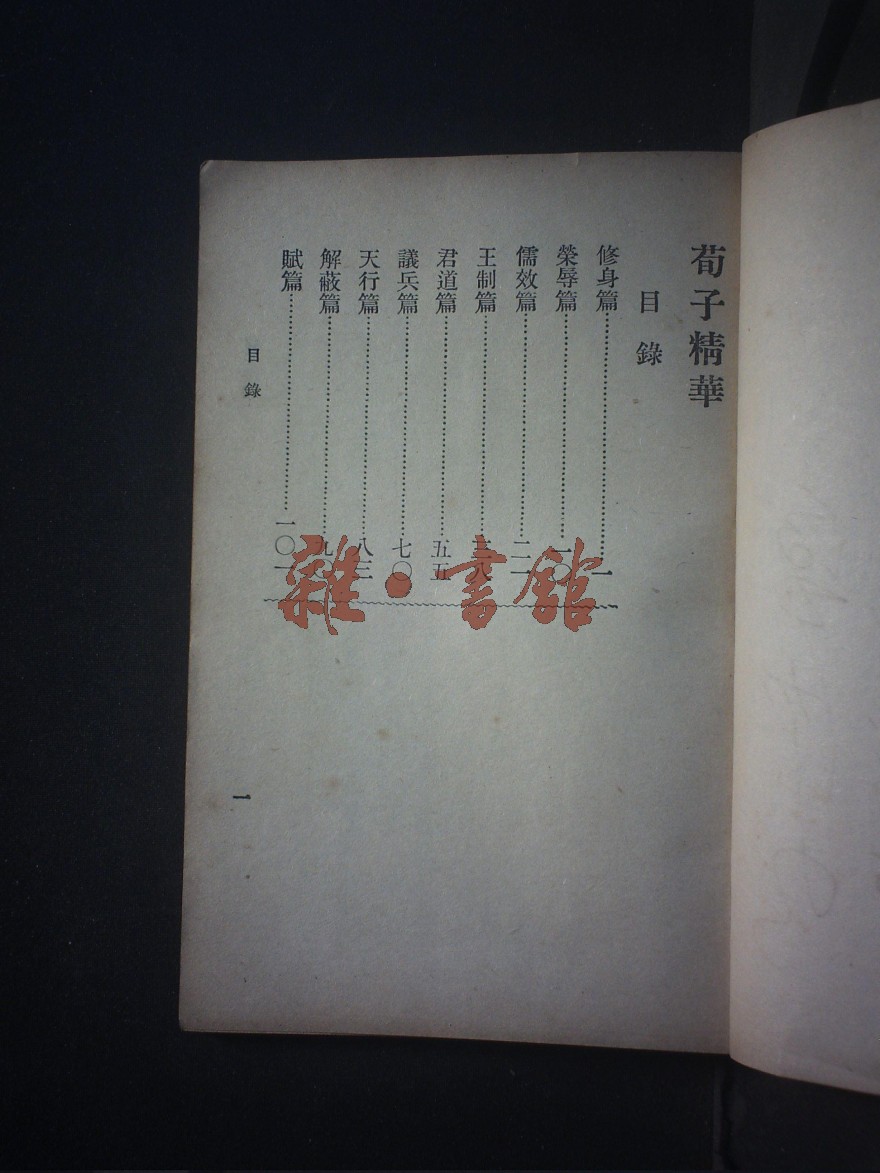 荀子精華
目錄
修身篇……一
榮辱篇……一〇
儒效篇……二一
王制篇……三八
君道篇……五五
議兵篇……七〇
天行篇……八三
解蔽篇……九〇
賦篇……一〇一
目錄
一
雜·書館